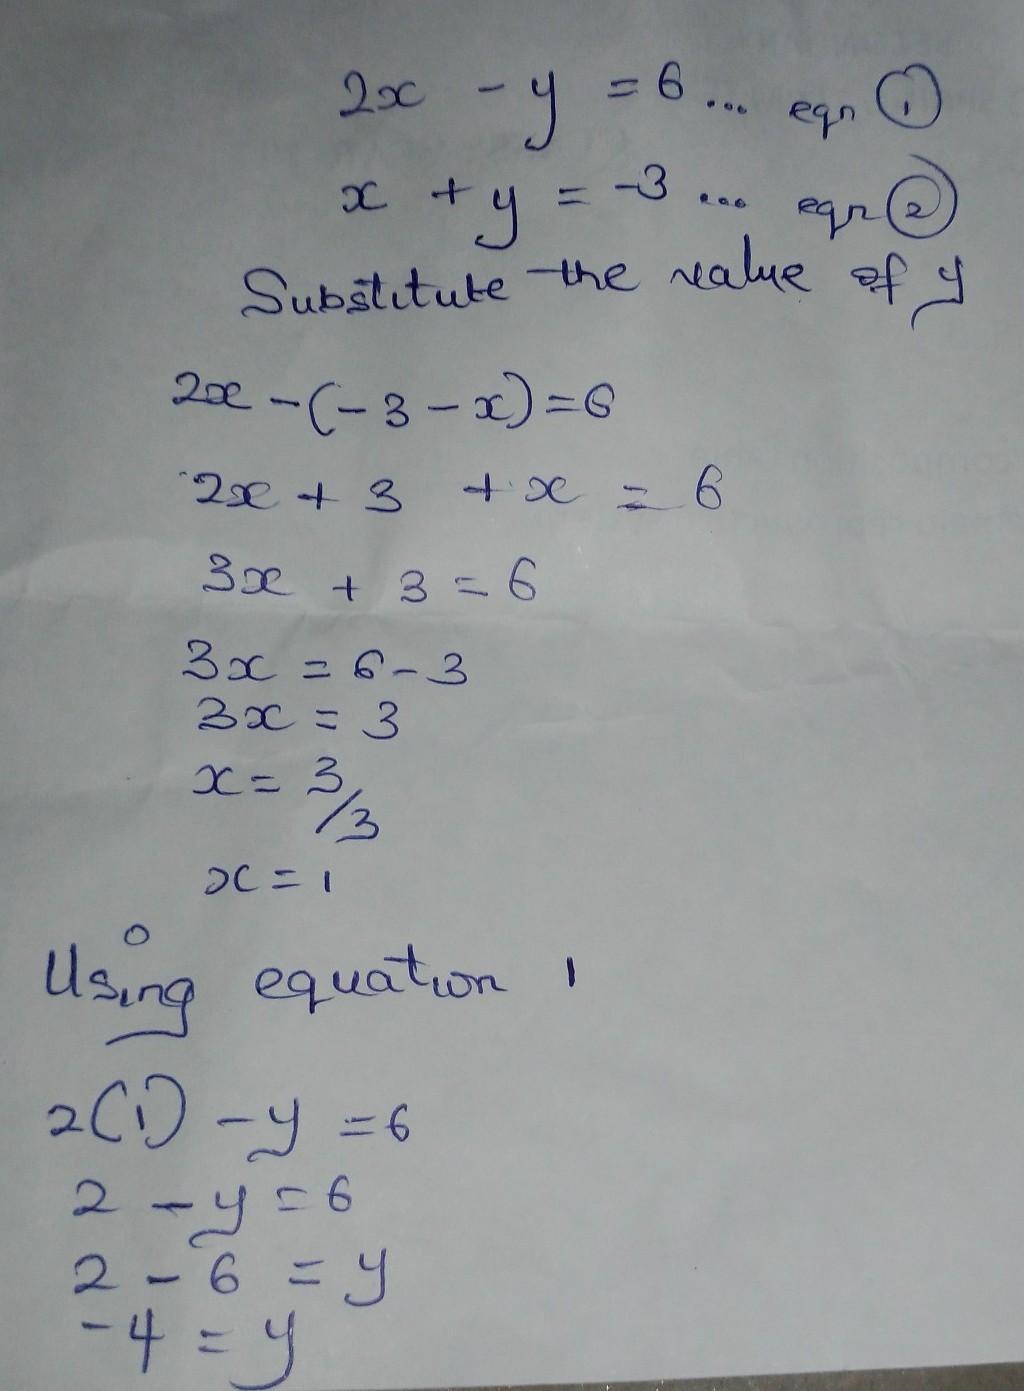 2x - y = 6 ... eqn ①
x + y = -3 ... eqn ②
Substitute the value of y
2x - (-3 - x) = 6
2x + 3 + x = 6
3x + 3 = 6
3x = 6 - 3
3x = 3
x = 3/3
x = 1
Using equation 1
2(1) - y = 6
2 - y = 6
2 - 6 = y
-4 = y